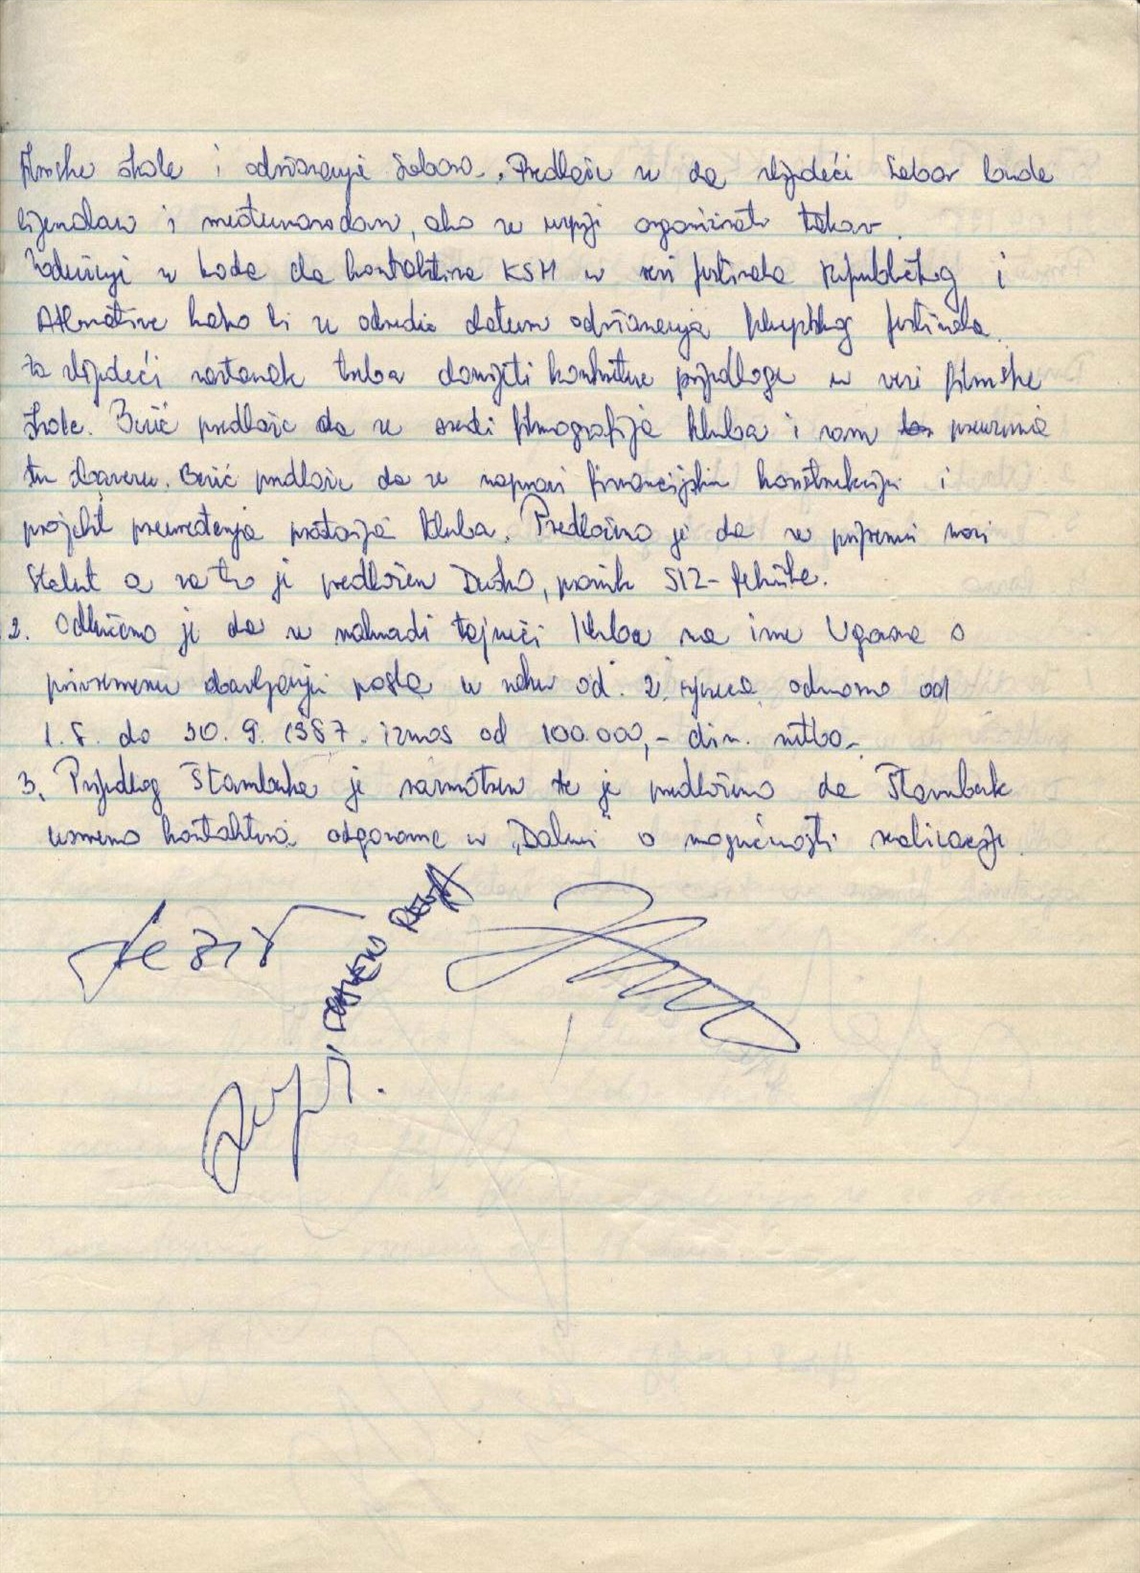 filmske škole i održavanje Sabora. Predlaže se da slijedeći Sabor bude
i međunarodan, ako se uspije organizirati takav.
se da kontaktira KSM u vezi festivala republičkog i
Alternative kako bi se odredio datum održavanja festivala.
Za slijedeći sastanak treba donijeti konkretne prijedloge u vezi filmske
škole. Berić predlaže da se sredi filmografija kluba i sam preuzima
tu obavezu. Berić predlaže da se napravi financijsku konstrukciju i
projekt preuređenja prostorija kluba. Predloženo je da se pripremi novi
Statut a za to je predložen Duško, pravnik SIZ-
2. Odlučeno je da se nahnadi tajnici Kluba na ime Ugovora o
privremenom obavljanju posla u roku od 2 mjeseca odnosno od
1.8. do 30.9.1987. iznos od 100.000,- din. netto.
3. Prijedlog Štambuka je razmotren te je predloženo da Štambuk
usmeno kontaktira odgovorne u "Dalmi" o mogućnosti realizacije.